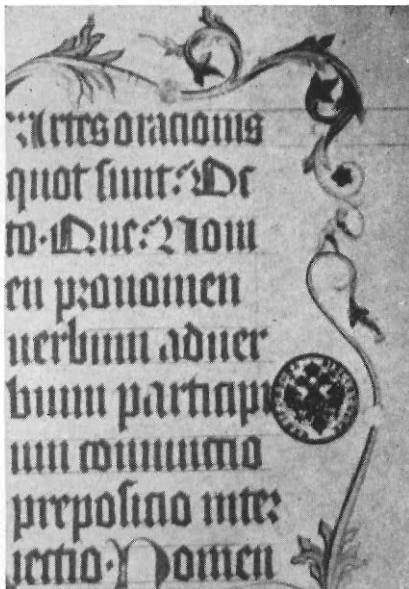 Artes orationis
quot sunt? Oc
to. Que? Nom
en pronomen
uerbum aduer
bium participi
um coniunctio
prepositio inter
iectio. Nomen